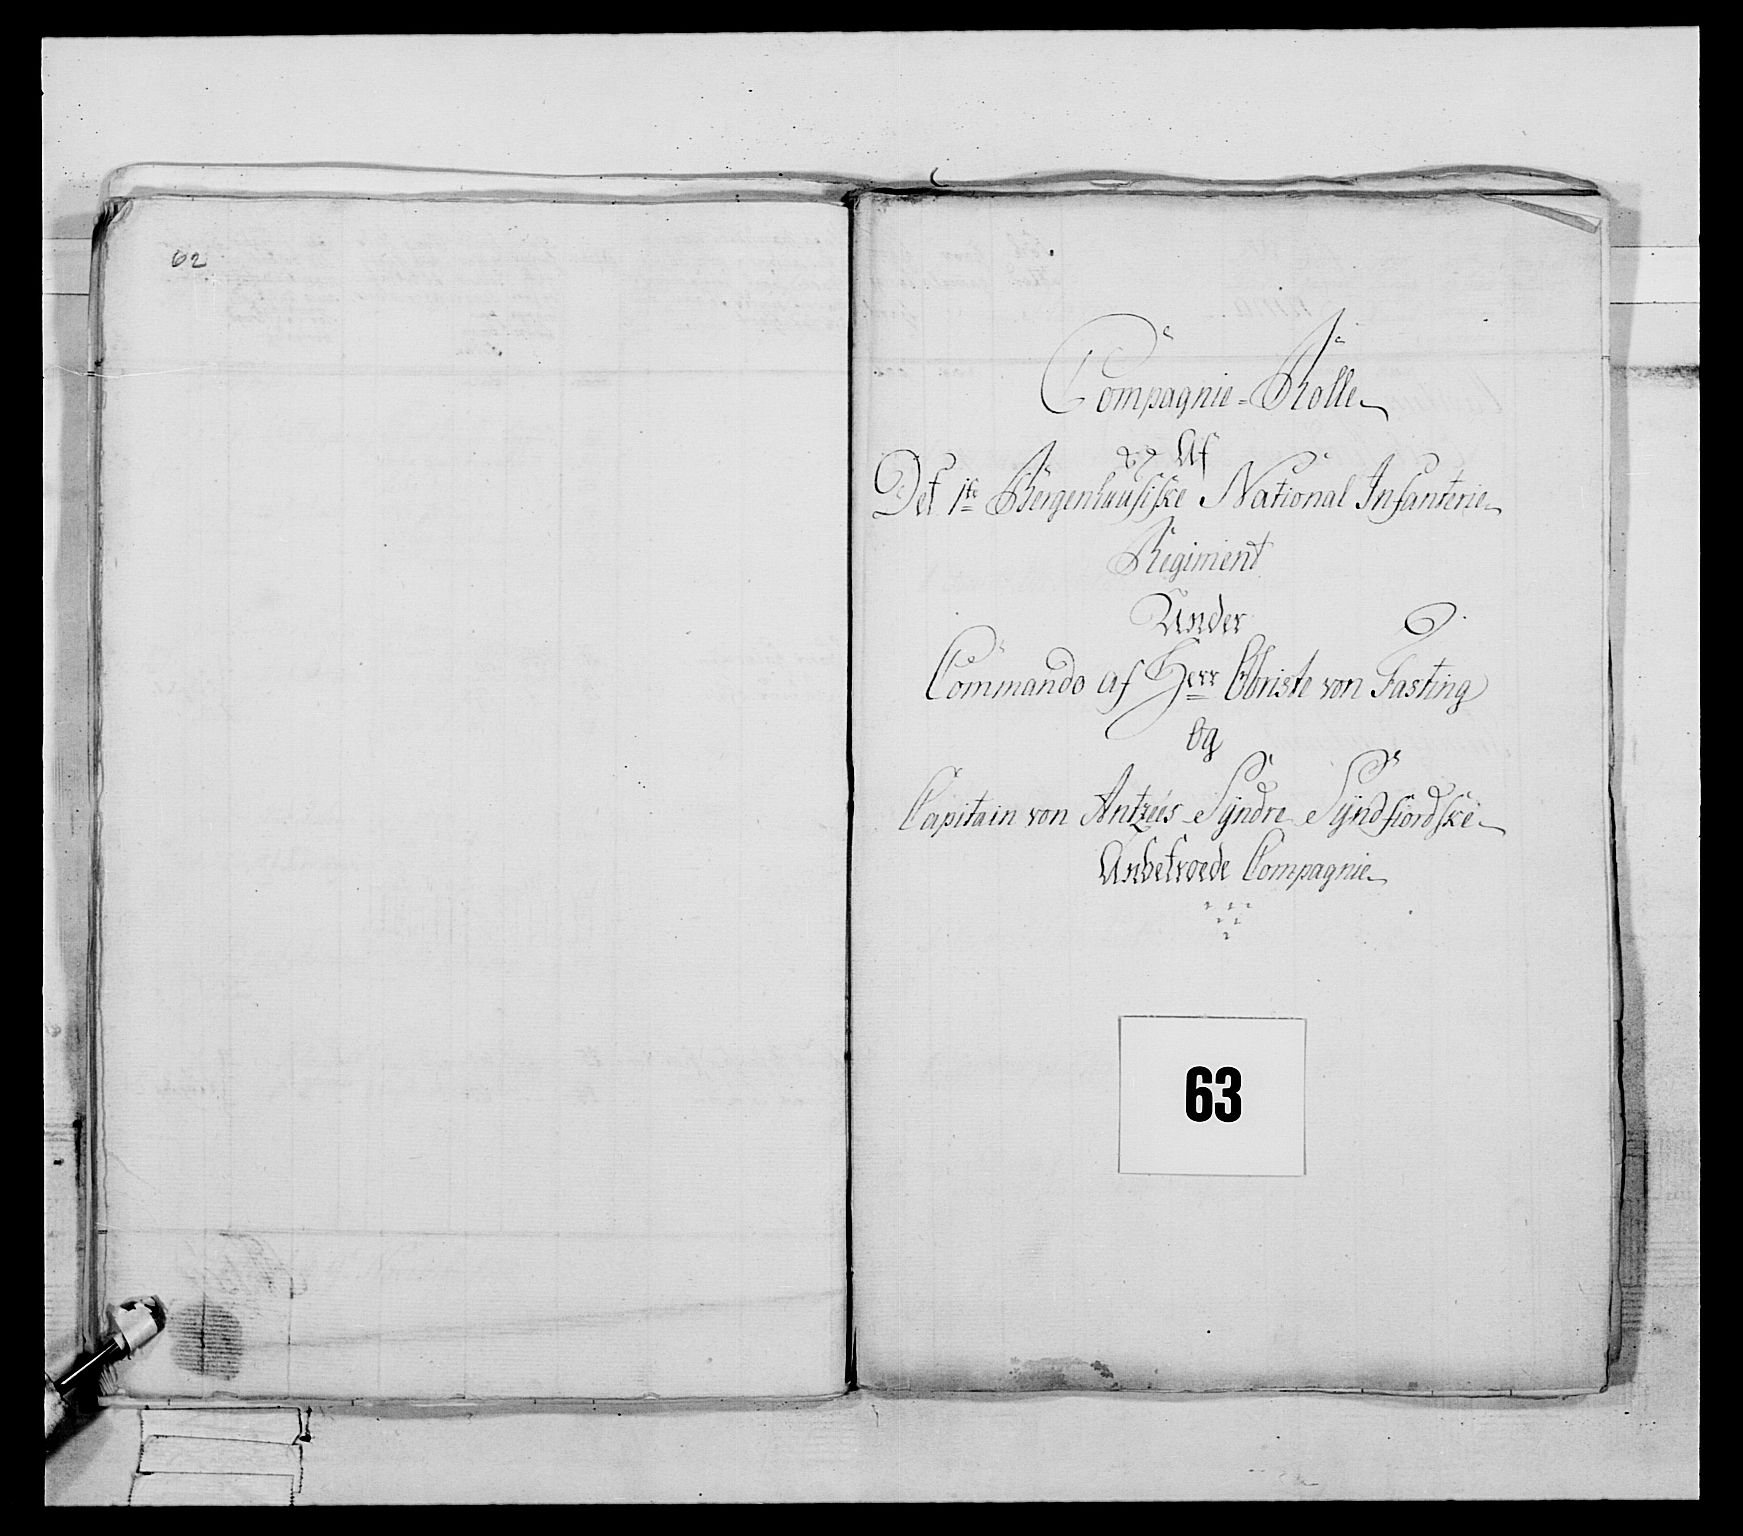 62
Compagnie-Rolle
Af
Det 1te Bergenhuusiske National Infanterie
Regiment
Under
Commando af Herr Obriste von Fasting
Og
Capitain von Antzées Syndre Syndfiordske
Anbetroede Compagnie
63